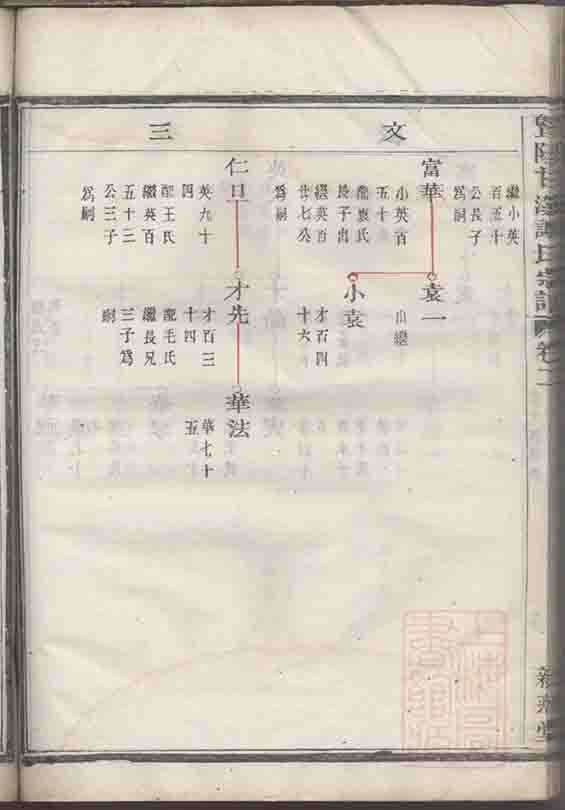 文
三
繼小英
百五十
公長子
爲嗣
富華
小英百
五十
配袁氏
長子出
繼英百
廿七公
爲嗣
仁旦
英九十
四
配王氏
繼英百
五十三
公三子
爲嗣
袁一
出繼
小袁
才百四
十六
才先
才百三
十四
配毛氏
繼長兄
三子爲
嗣
華法
華七十
五
氏宗譜
卷二